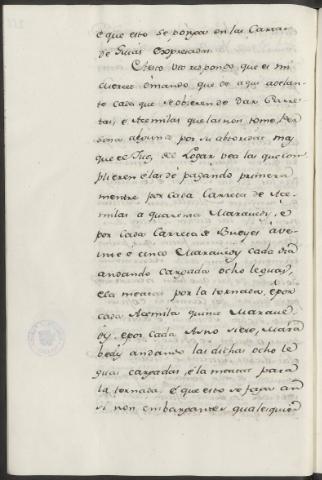 e que esto se pongan en las Carta
de Guias expresadas
A esto vos respondo que es mi
merced e mando que de aqui adelan
te cada que se obieren de dar Carre
tas, e Azemilas que las non tome Per
sona alguna por su abtoridad mas
que el Juez del Logar vea las que com
plieren e las dé pagando primera
mente por cada Carreta de Aze
milas a quarenta Maravedis, e
por cada Carreta de Bueyes à ve
inte e cinco Maravedis cada dia
andando cargadas ocho leguas,
e la meatad por la tornada, e por
cada Azemila quince Marave
dis, e por cada Asno siete, Mara
bedis andando las dichas ocho le
guas cargadas, e la meatad para
la tornada e que esto se faga an
si non embargantes qualesquier